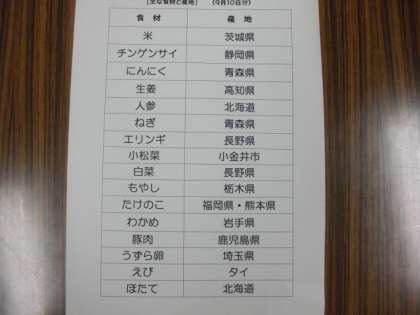 [主な食材と産地] (9月10日分)
食材 産地
米 茨城県
チンゲンサイ 静岡県
にんにく 青森県
生姜 高知県
人参 北海道
ねぎ 青森県
エリンギ 長野県
小松菜 小金井市
白菜 長野県
もやし 栃木県
たけのこ 福岡県・熊本県
わかめ 岩手県
豚肉 鹿児島県
うずら卵 埼玉県
えび タイ
ほたて 北海道